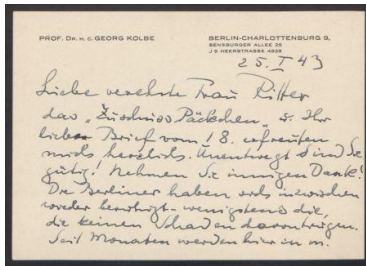 PROF. DR. H. C. GEORG KOLBE
BERLIN-CHARLOTTENBURG 9,
SENSBURGER ALLEE 25
J 9 HEERSTRASSE 4928
25. I 43
Liebe verehrte Frau Ritter
das „ Päckchen" u. Ihr
lieber Brief vom 18. erfreuten
mich herzlich. Unentwegt sind Sie
gütig! Nehmen Sie innigen Dank!
Die Berliner haben sich inzwischen
wieder beruhigt - wenigstens die,
die keinen Schaden davontrugen.
Seit Monaten werden hier in m.